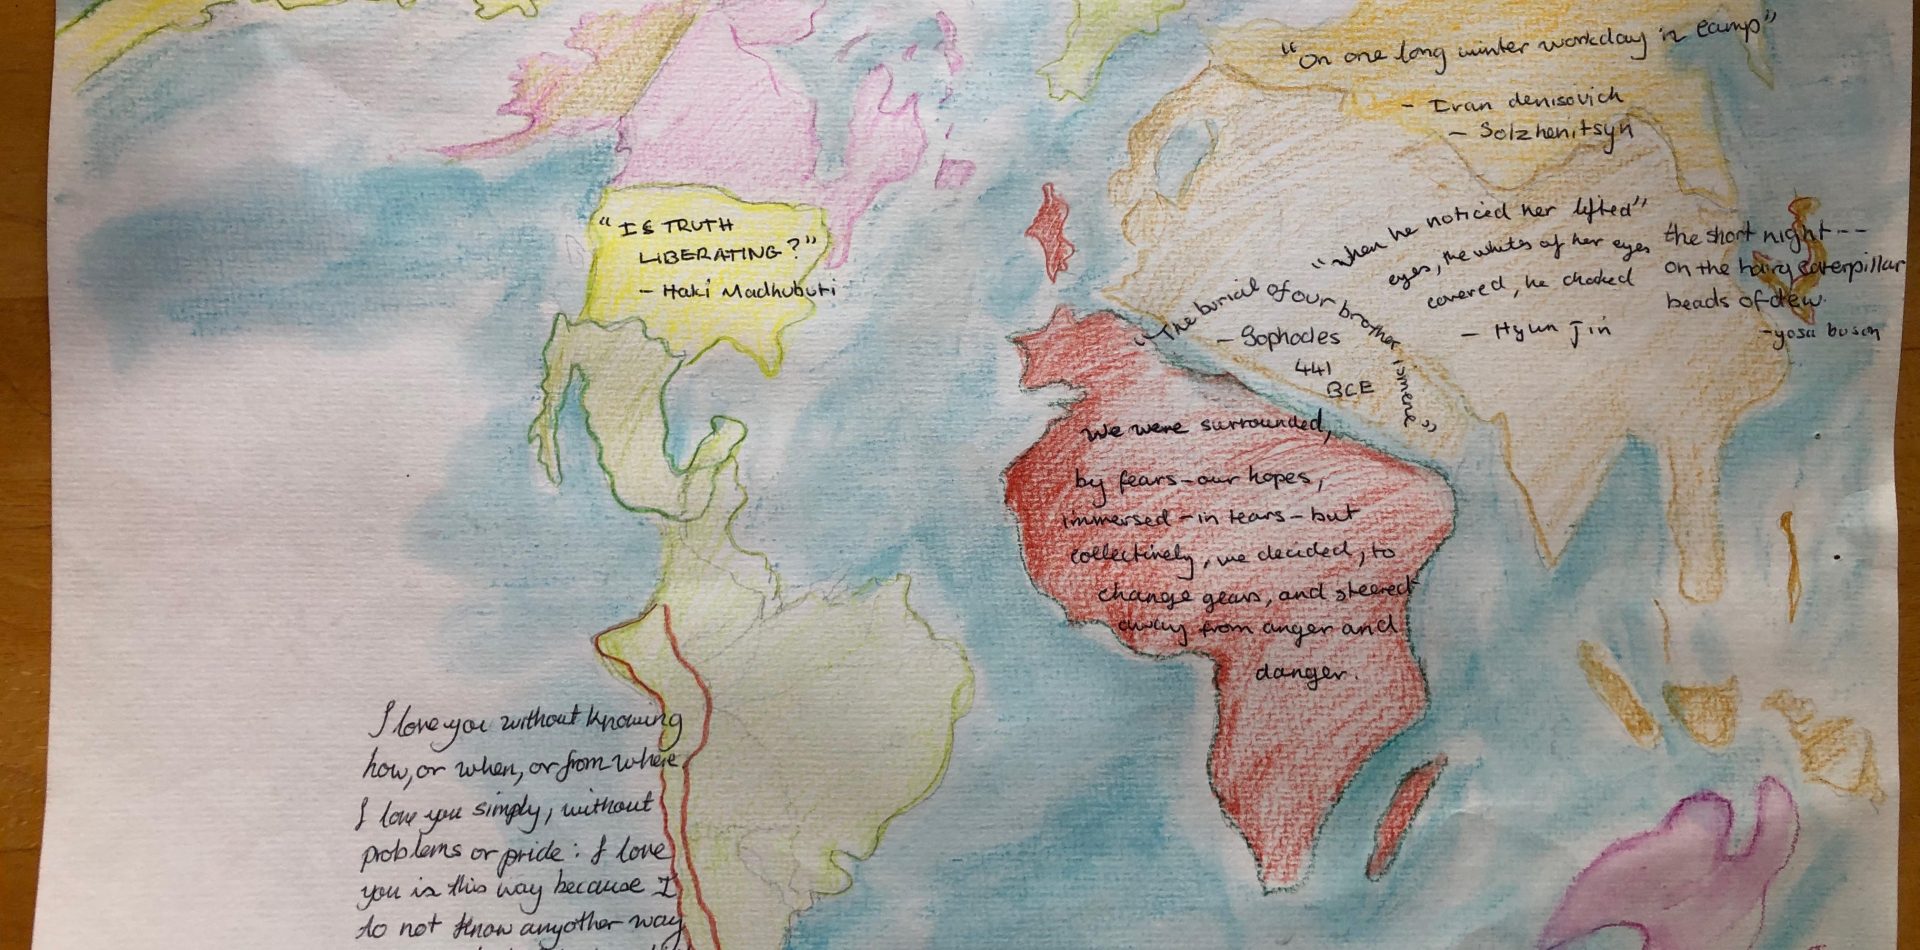 "On one long winter workday in camp"
- Ivan denisovich
- Solzhenitsyn
"IS TRUTH
LIBERATING?"
- Haki Madhubuti
"when he noticed her lifted"
eyes, the whites of her eyes
covered, he choked
- Hyun Jin
the short night--
on the hairy caterpillar
beads of dew.
-yosa buson
"The burial of our brother ismene"
- Sophocles
441
BCE
We were surrounded,
by fears-our hopes,
immersed-in tears-but
collectively, we decided, to
change gears, and steered
away from anger and
danger.
I love you without knowing
how, or when, or from where
I love you simply, without
problems or pride: I love
you in this way because I
do not know anyother way